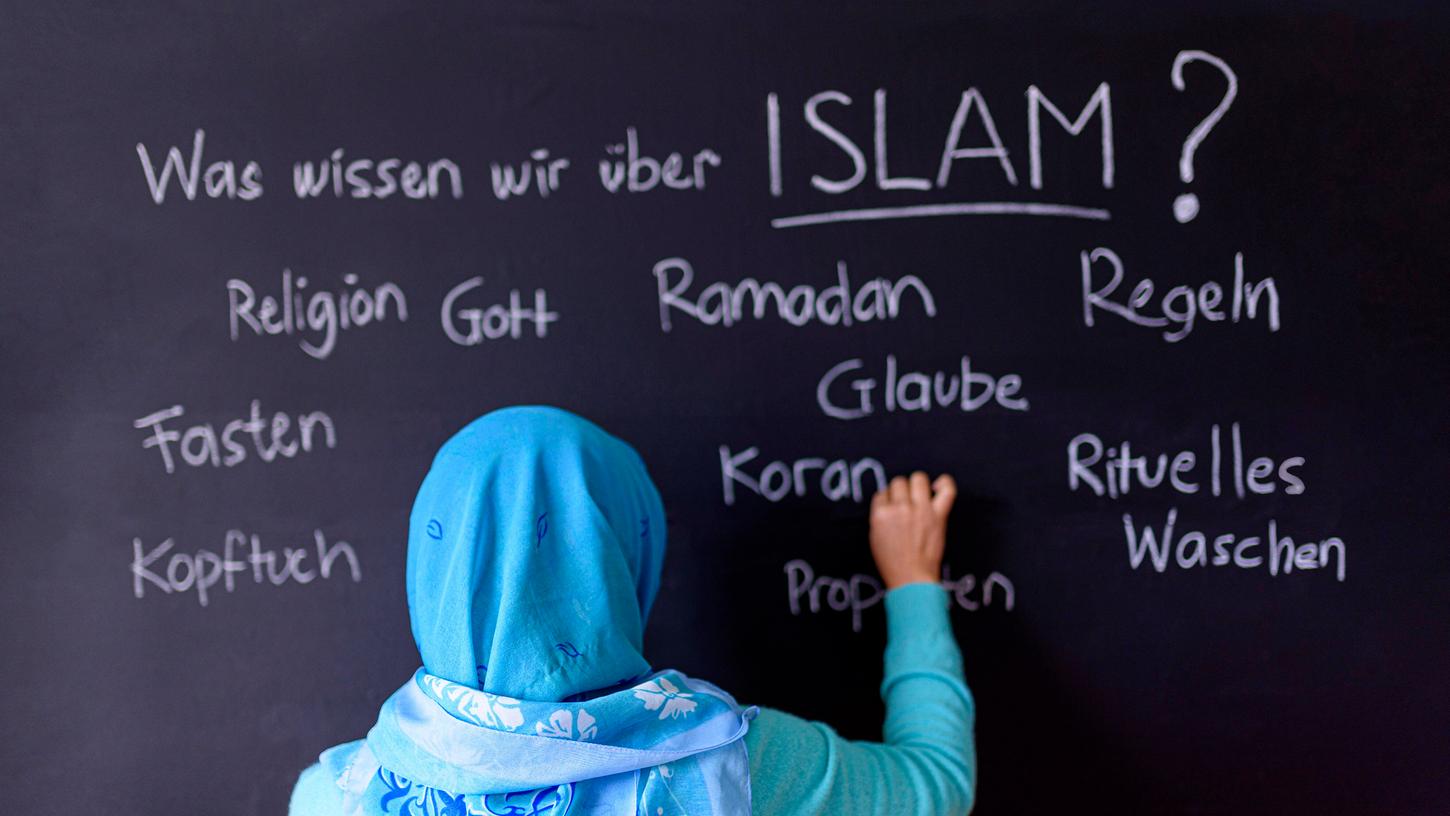 Was wissen wir über ISLAM ?
Religion Gott Ramadan Regeln
Glaube
Fasten
Koran Rituelles
Waschen
Kopftuch